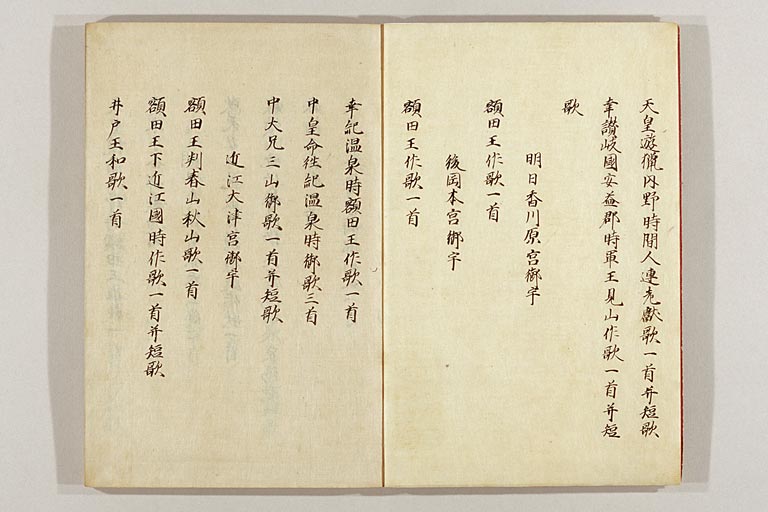 天皇遊猟内野時間人連老獻歌一首并短歌
幸讃岐國安益郡時軍王見山作歌一首并短
歌
明日香川原宮御宇
額田王作歌一首
後岡本宮御宇
額田王作歌一首
幸記温泉時額田王作歌一首
中皇命往記温泉時御歌三首
中大兄三山御歌一首并短歌
近江大津宮御宇
額田王判春山秋山歌一首
額田王下近江國時作歌一首并短歌
井戸王和歌一首